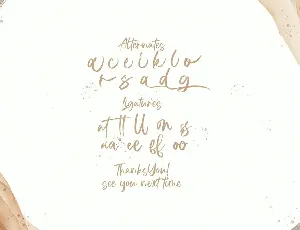 Alternates
a c e i k l o
r s a d g
Ligatures
nt tt ll on ss
aa ee ff oo
ThanksYou!
see you next time